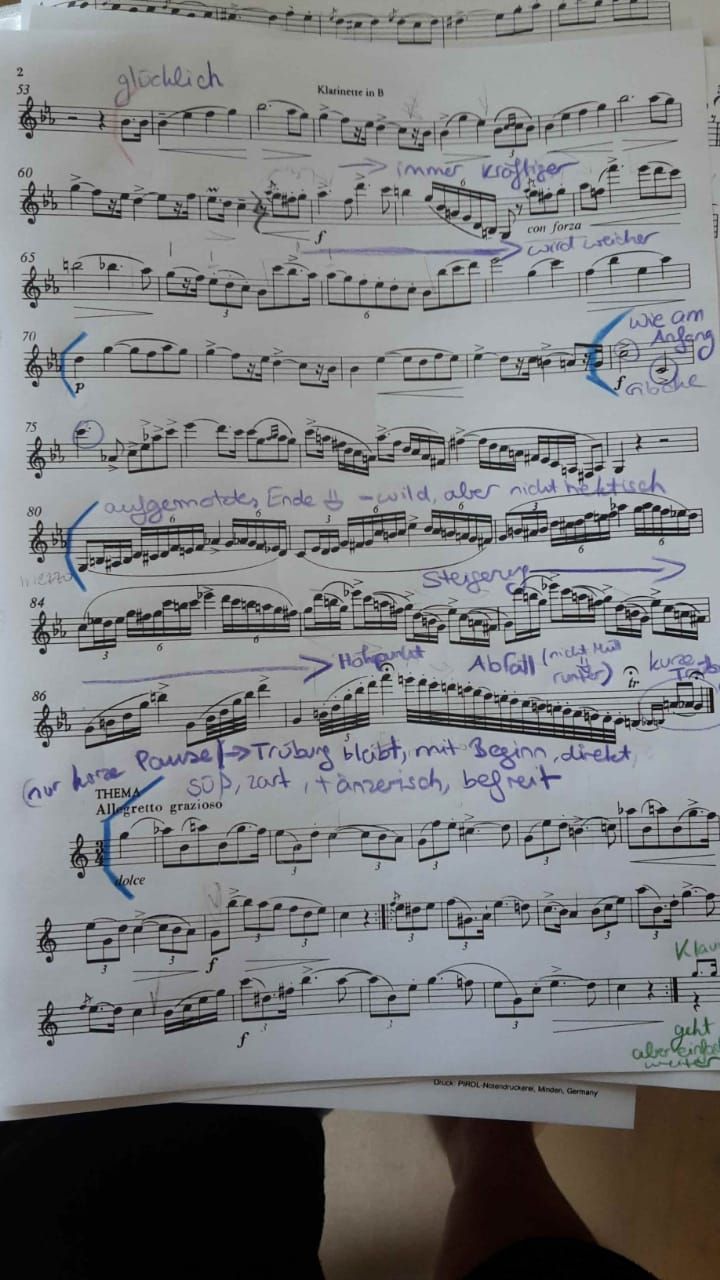 2
53
glücklich
Klarinette in B
60
→ immer kräftiger
6
f
con forza
65
wird weicher
3
6
70
p
wie am
Anfang
f
75
80
aufgemotztes Ende - wild, aber nicht hektisch
6 6 6 6
3 6 6
mezzo
84
Steigerung
3 6 6
86
Höhepunkt
Abfall (nicht
kurze
3
tr
(nur kurze Pause!) → Trübung bleibt, mit Beginn, direkt,
süß, zart, tänzerisch, befreit
THEMA
Allegretto grazioso
3
4
dolce
3 3 3 3
3 3 f 3 3 3 3 3
Klav
f 3 3 3
geht
aber einfach
weiter
Druck: PIROL-Notendruckerei, Minden, Germany